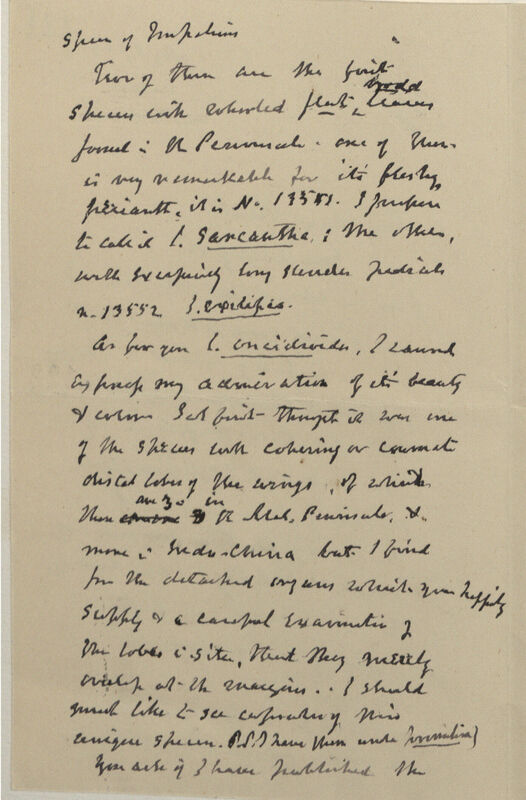 Species of Impatiens
Two of them are the first
broad
species with whorled flat, leaves
found in the Peninsula. one of them
is very remarkable for its fleshy
perianth, it is No. 13551. I propose
to call it I. Sarcantha; the other,
with exceedingly long slender pedicels
n. 13552 I. exilipes.
As for your I. oncidioides, I cannot
express my admiration of its beauty
& colour I at first thought it was one
of the species with cohering or connate
distal lobes of the wings, of which
are 3 in
there the Mal. Peninsula, &
more in Indo-China but I find
from the detached organs which you happily
supply & a careful examination of
the lobes in situ, that they merely
overlap at the margins. I should
much like to see capsules of this
unique species. P.S. I have them under
You ask if I have published the